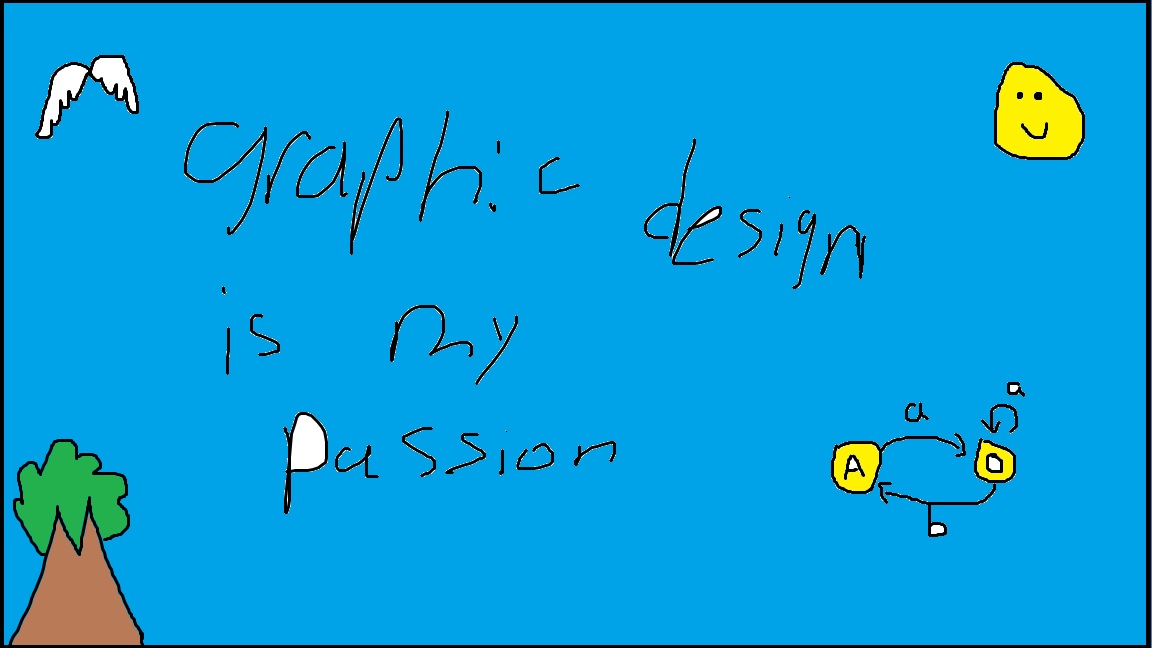 graphic design
is my
passion
a
a
A
D
b